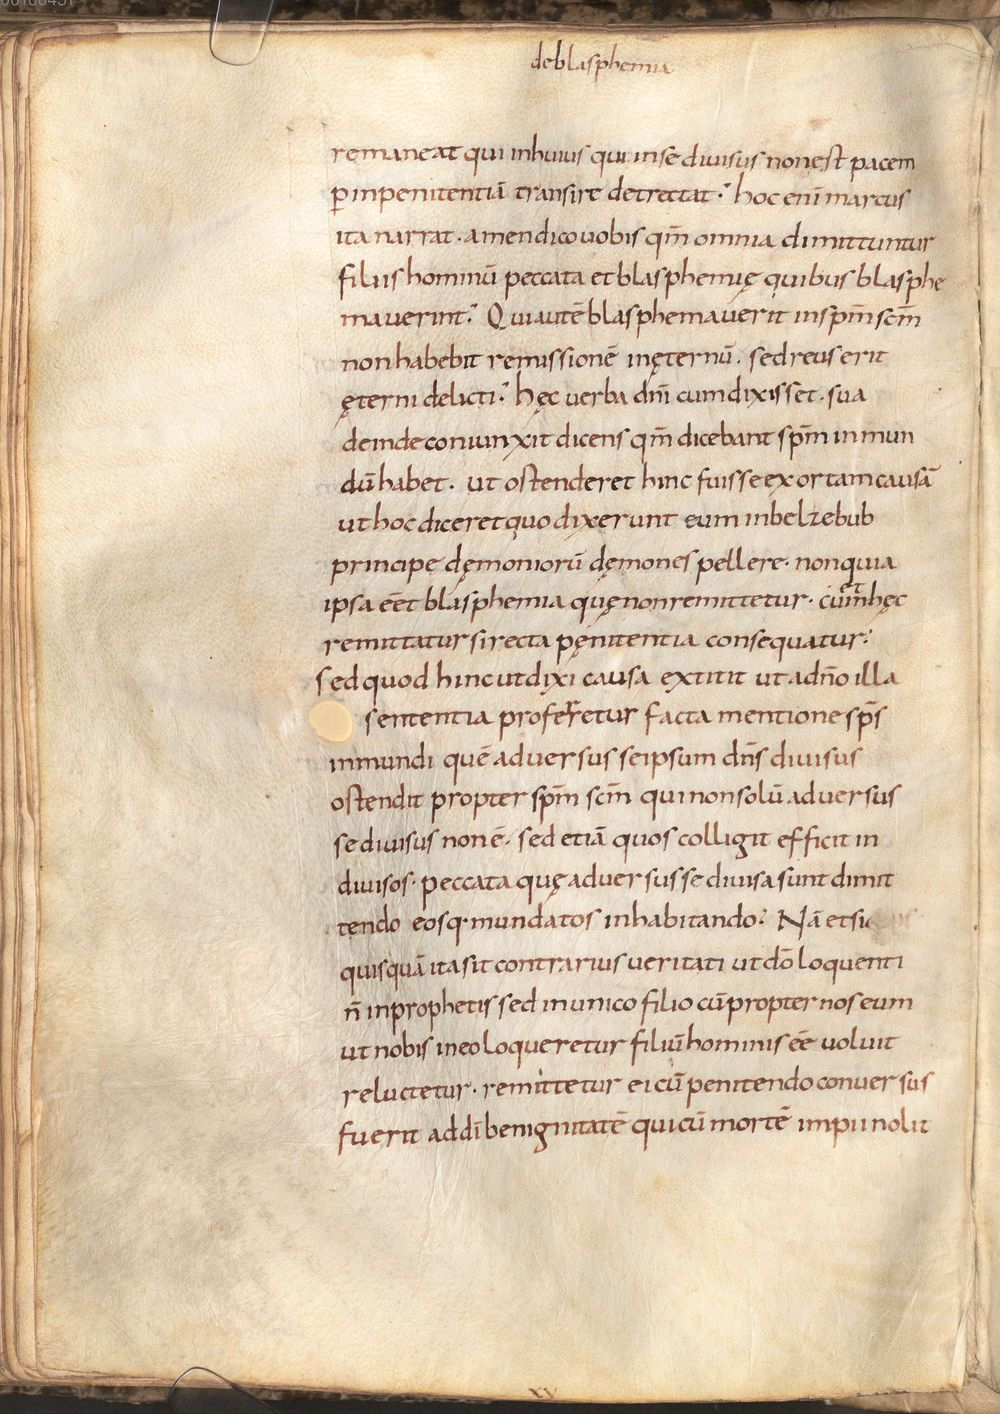 deblasphemia
remaneat qui inhuius qui inse diuisus nonest pacem
ꝑinpenitentiā transire detrectat. hoc enī marcus
ita narrat. amendicouobis qm̄ omnia dimittuntur
filiis hominū peccata et blasphemię quibus blasphe
mauerint. Qui autē blasphemauerit inspm̄ scm̄
nonhabebit remissionē inęternū. sed reus erit
ęterni delicti. hęc uerba dn̄i cum dixisset. sua
deinde coniunxit dicens qm̄ dicebant spm̄ inmun
dū habet. ut ostenderet hinc fuisse exortam causā
ut hoc diceret quo dixerunt eum inbelzebub
principe dęmoniorū dęmones pellere. nonquia
ipsa eēt blasphemia quę nonremittetur. cum et hęc
remittatur si recta pęnitentia consequatur.
sed quod hinc ut dixi causa extitit ut adn̄o illa
sententia proferretur facta mentione sp̄s
inmundi quē aduersus seipsum dn̄s diuisus
ostendit propter spm̄ scm̄ qui nonsolū aduersus
se diuisus non ē. sed etiā quos colligit efficit in
diuisos. peccata quę aduersus se diuisa sunt dimit
tendo eosq. mundatos inhabitando. Nā etsi
quisquā ita sit contrarius ueritati ut dō loquenti
n̄ inprophetis sed inunico filio cū propter nos eum
ut nobis ineo loqueretur filiū hominis eē uoluit
reluctetur. remittetur ei cū penitendo conuersus
fuerit ad dī benignitatē qui cū mortē impii nolit
xv